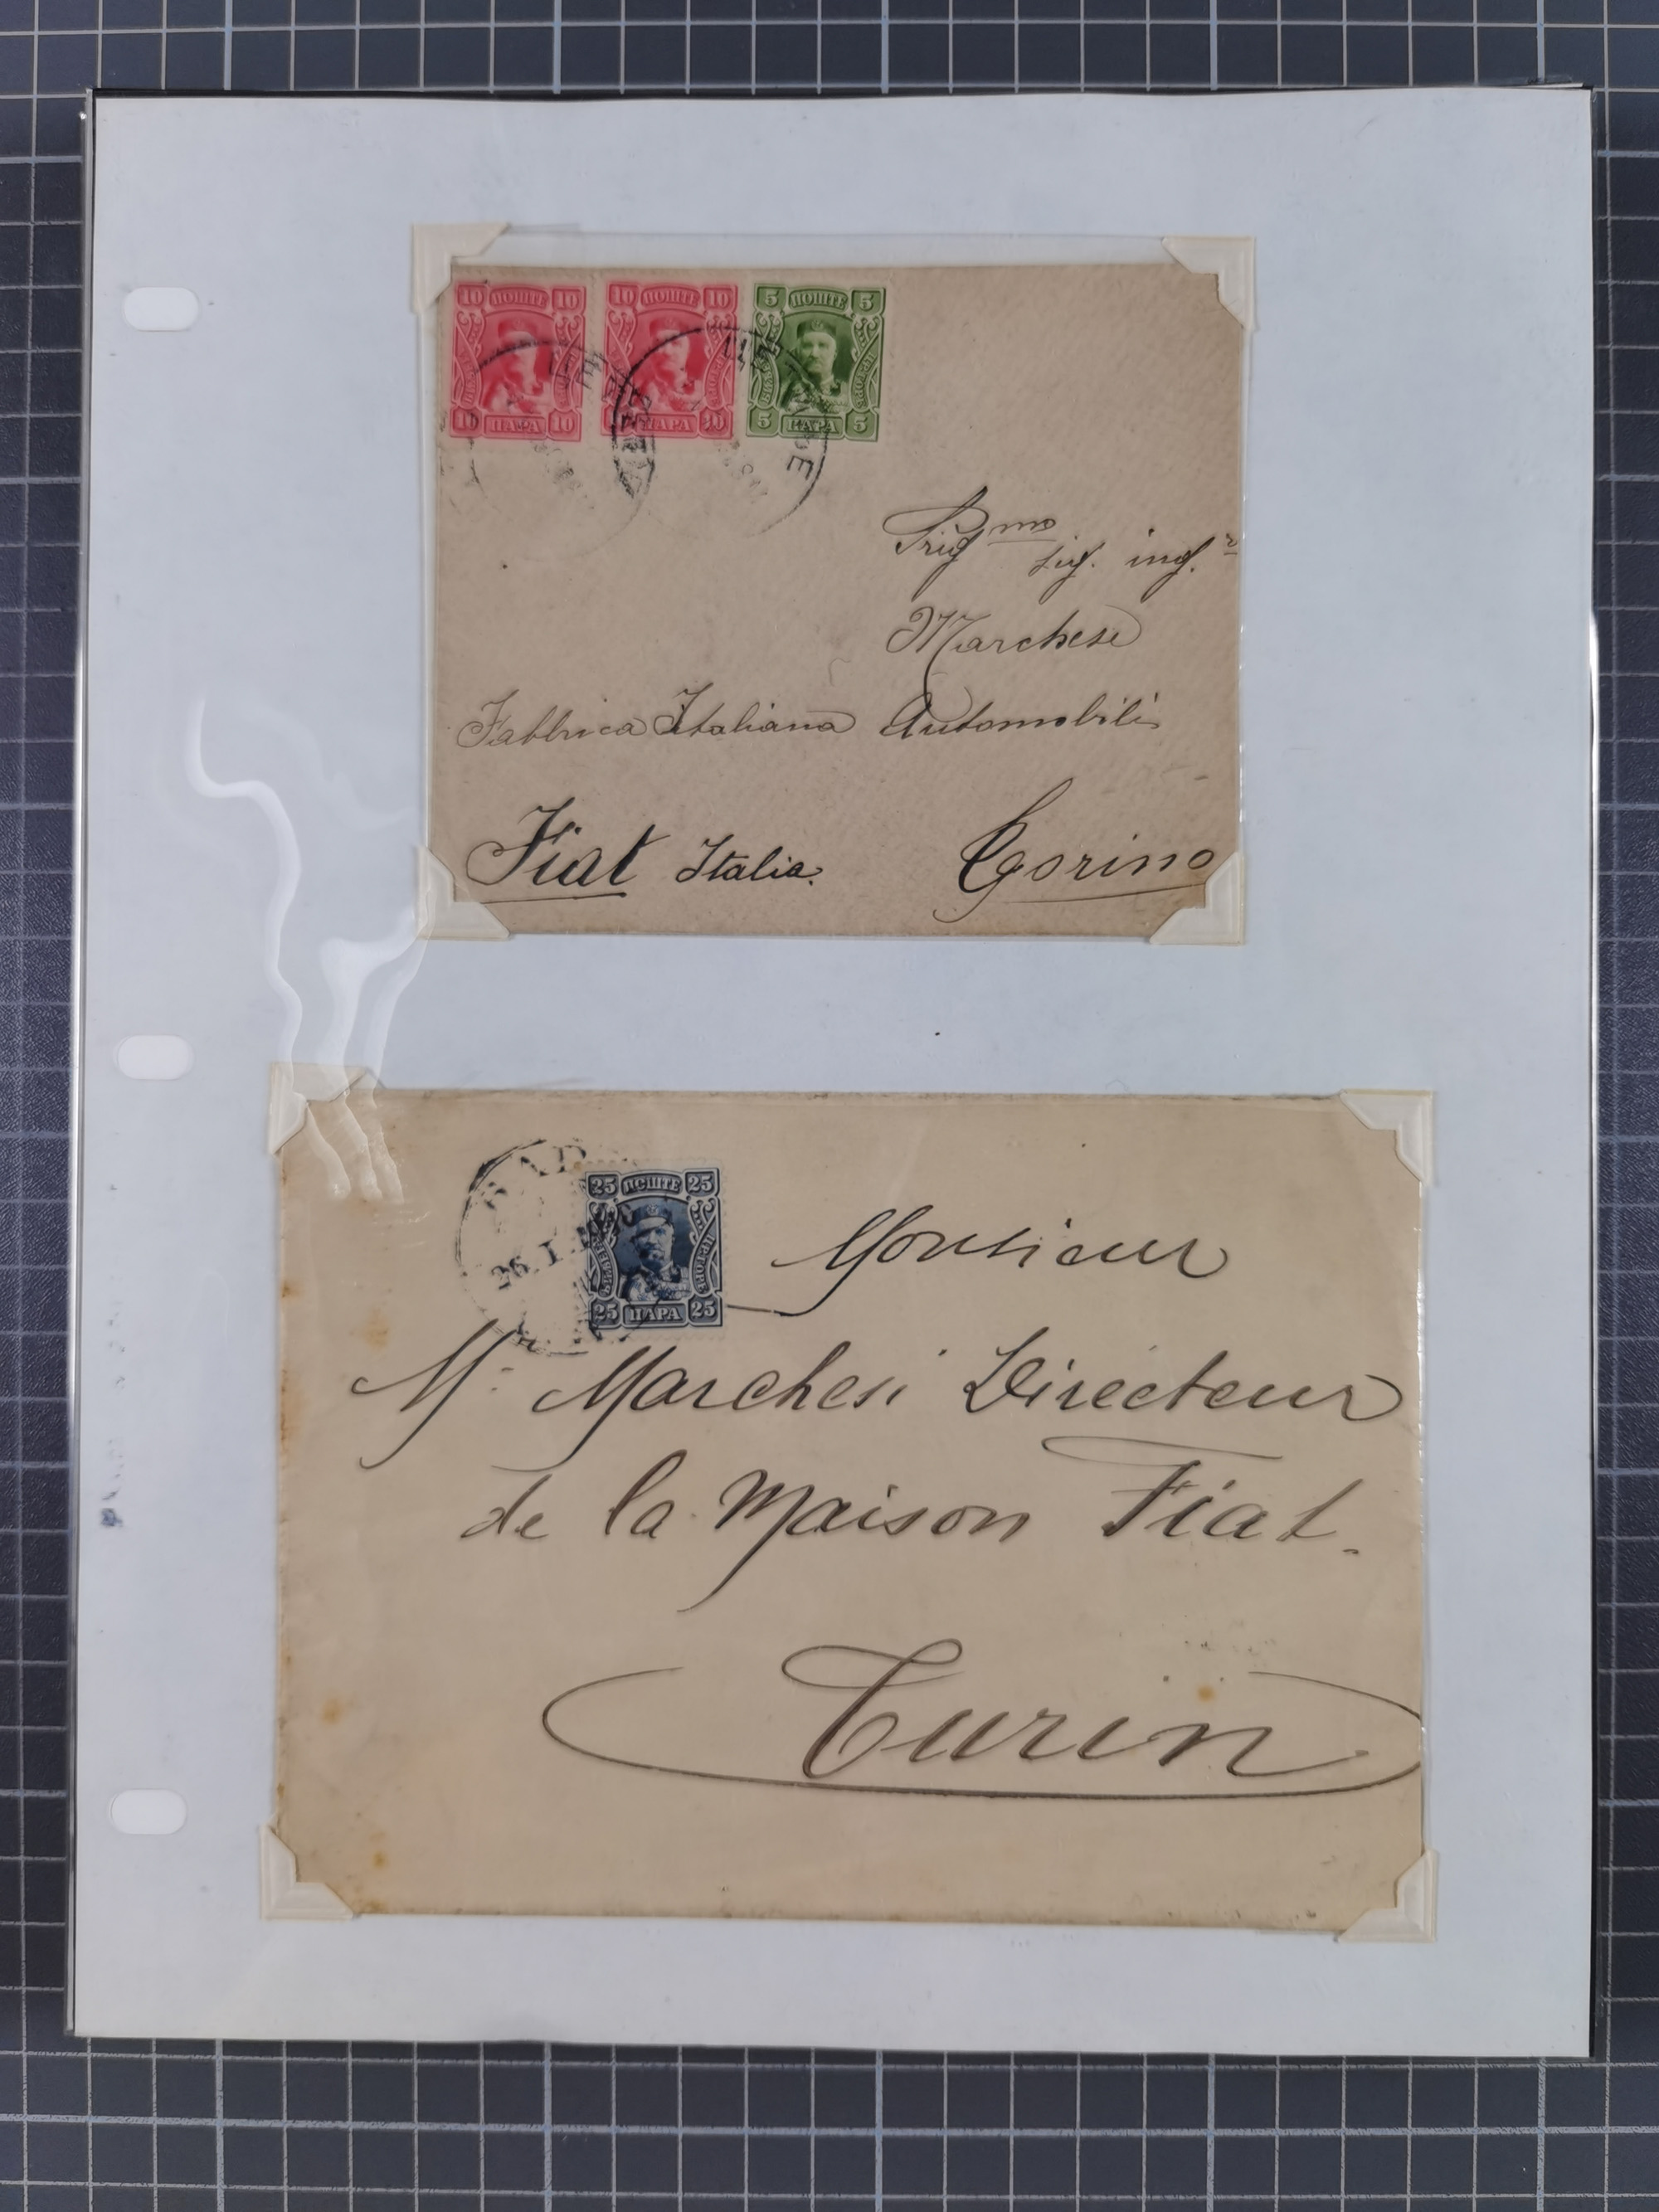 10 ПОШТЕ 10
10 ПАРА 10
10 ПОШТЕ 10
ПАРА
5 ПОШТЕ 5
5 ПАРА 5
Preg mo
sig. ing. r
Marchesi
Fabbrica Italiana Automobili
Fiat Italia. Torino
25 ПОШТЕ 25
25 ПАРА 25
26. I
Monsieur
Mr Marchesi Directeur
de la Maison Fiat.
Turin